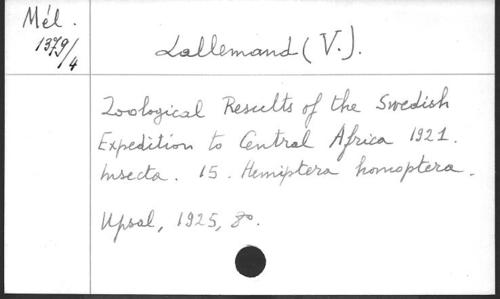 Mél.
1379/4
Lallemand (V.).
Zoological Results of the Swedish
Expedition to Central Africa 1921.
Insecta. 15. Hemiptera homoptera.
Upsal, 1925, 8º.